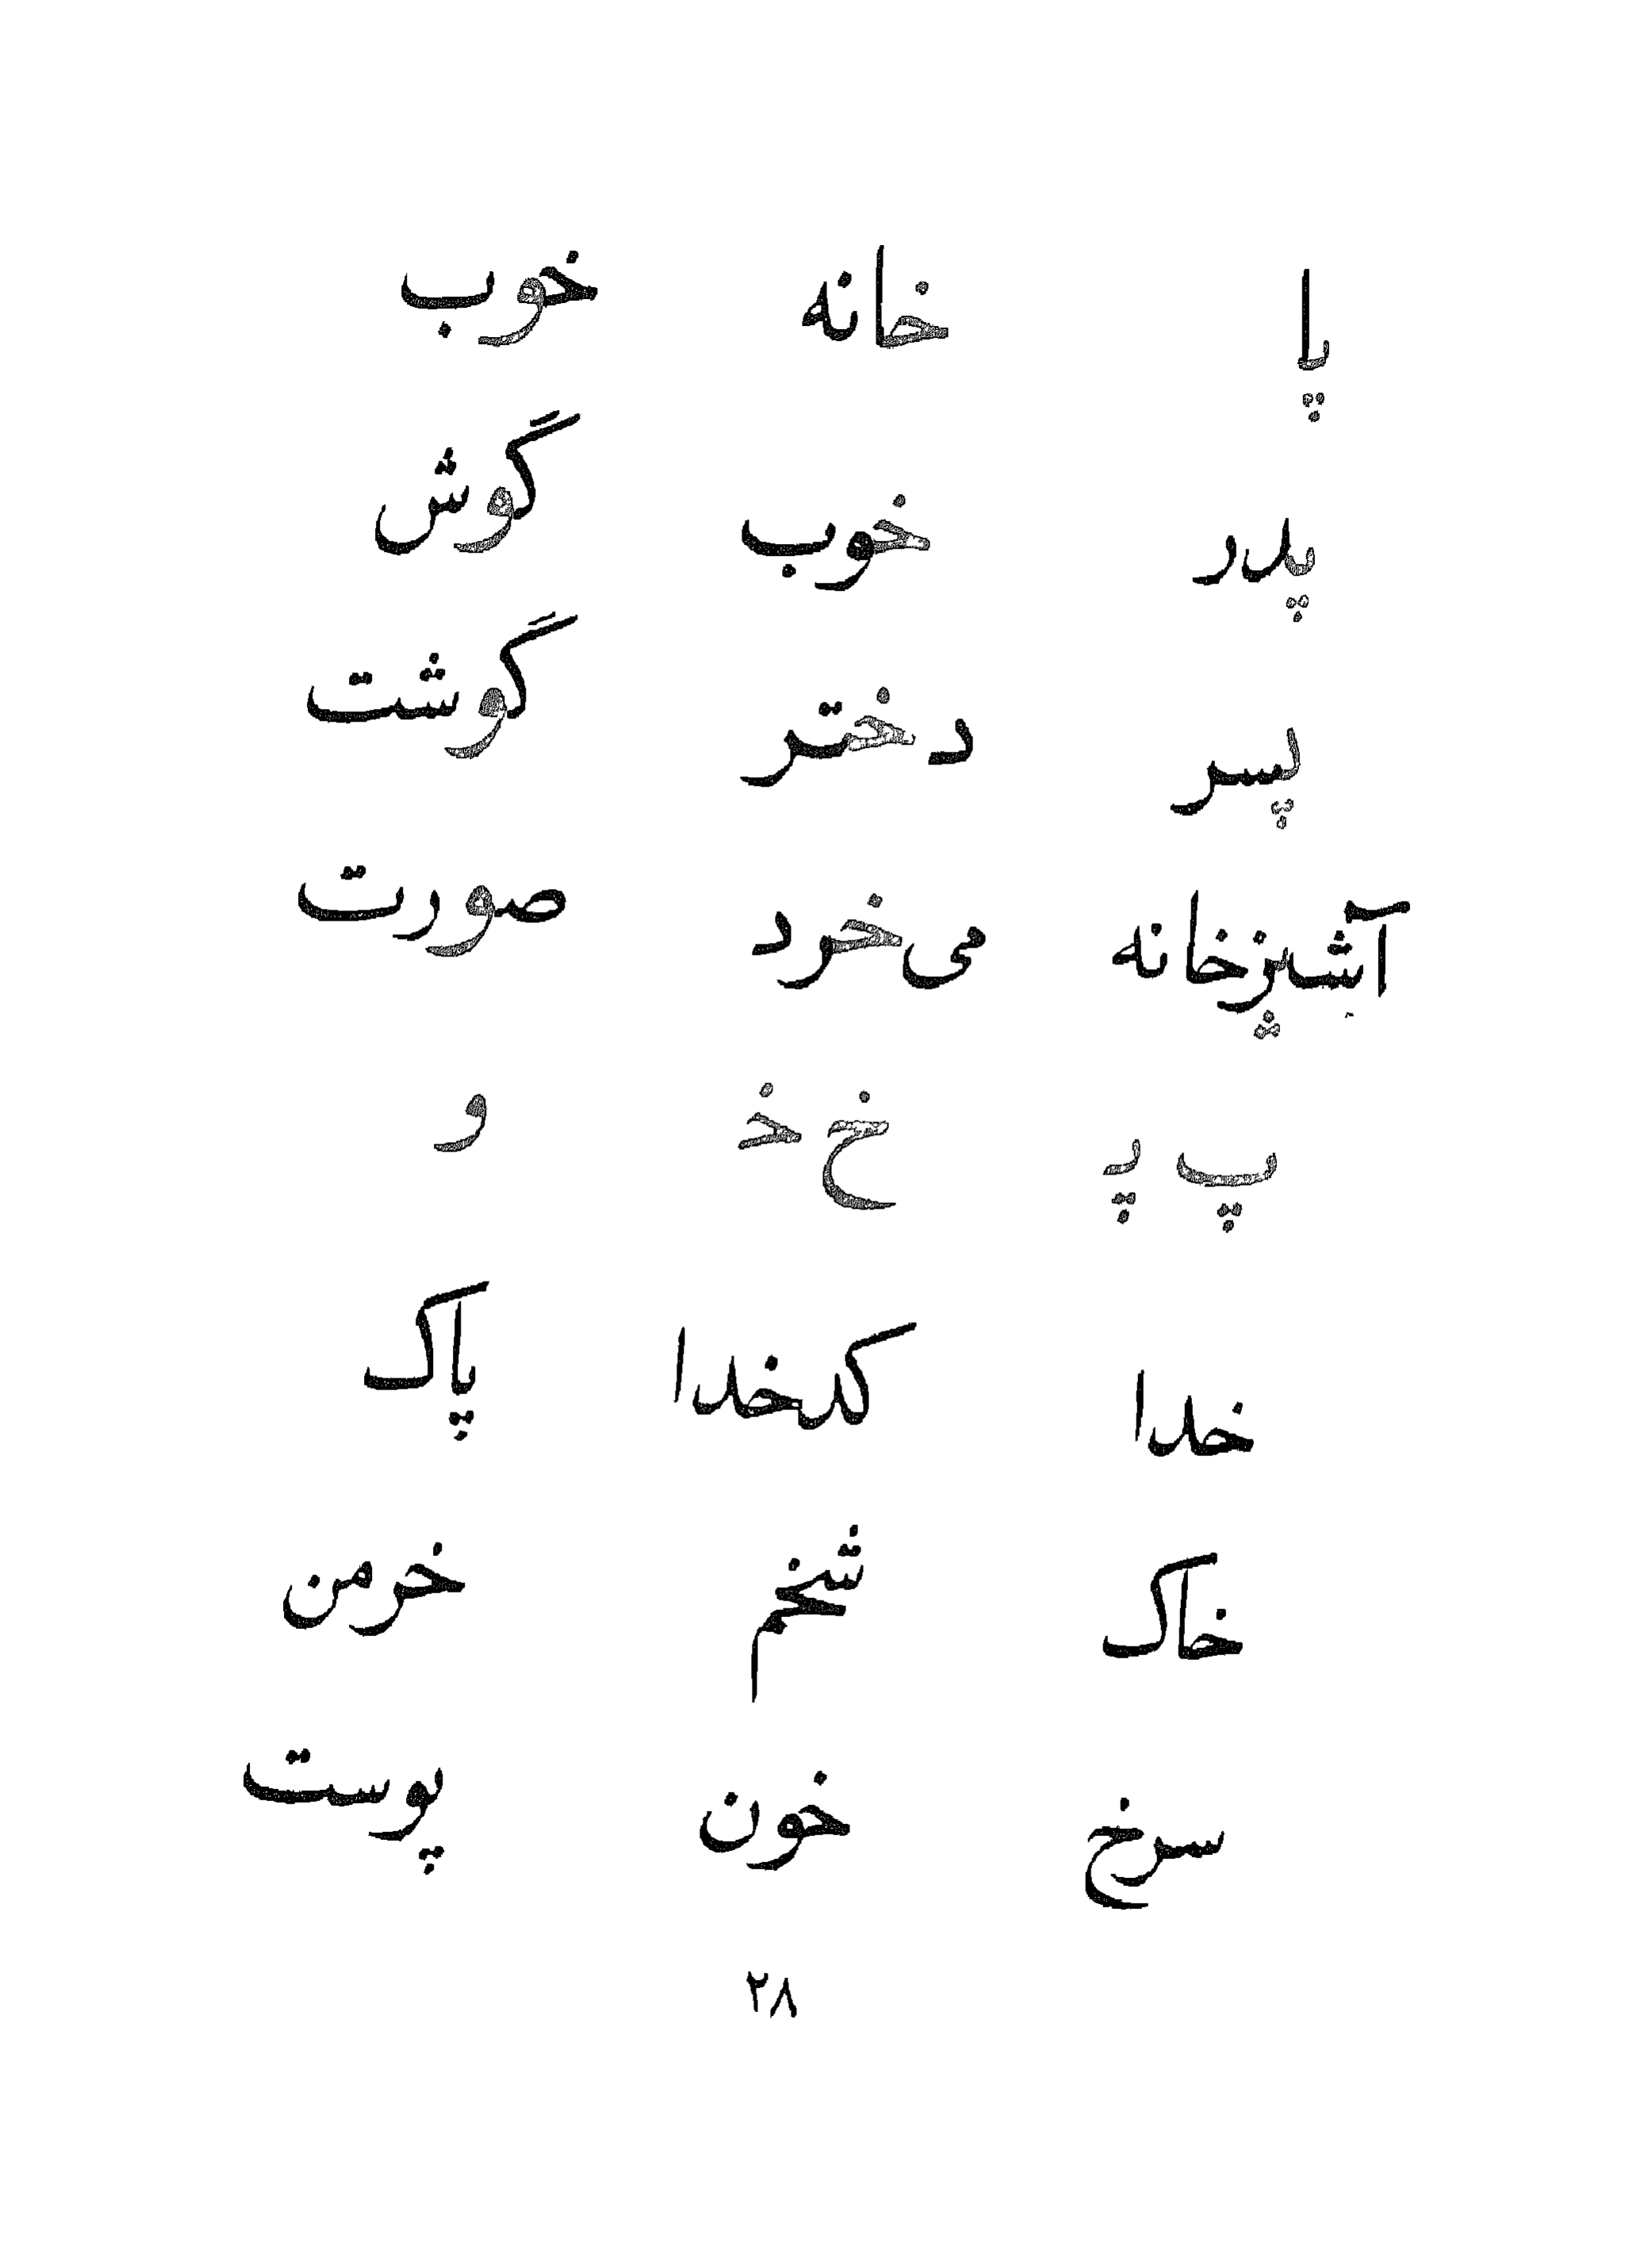 پا خانه خوب
پدر خوب گوش
پسر دختر گوشت
آشپزخانه می‌خرد صورت
پ پـ خ خـ و
خدا کدخدا پاک
خاک شخم خرمن
سرخ خون پوست
۲۸